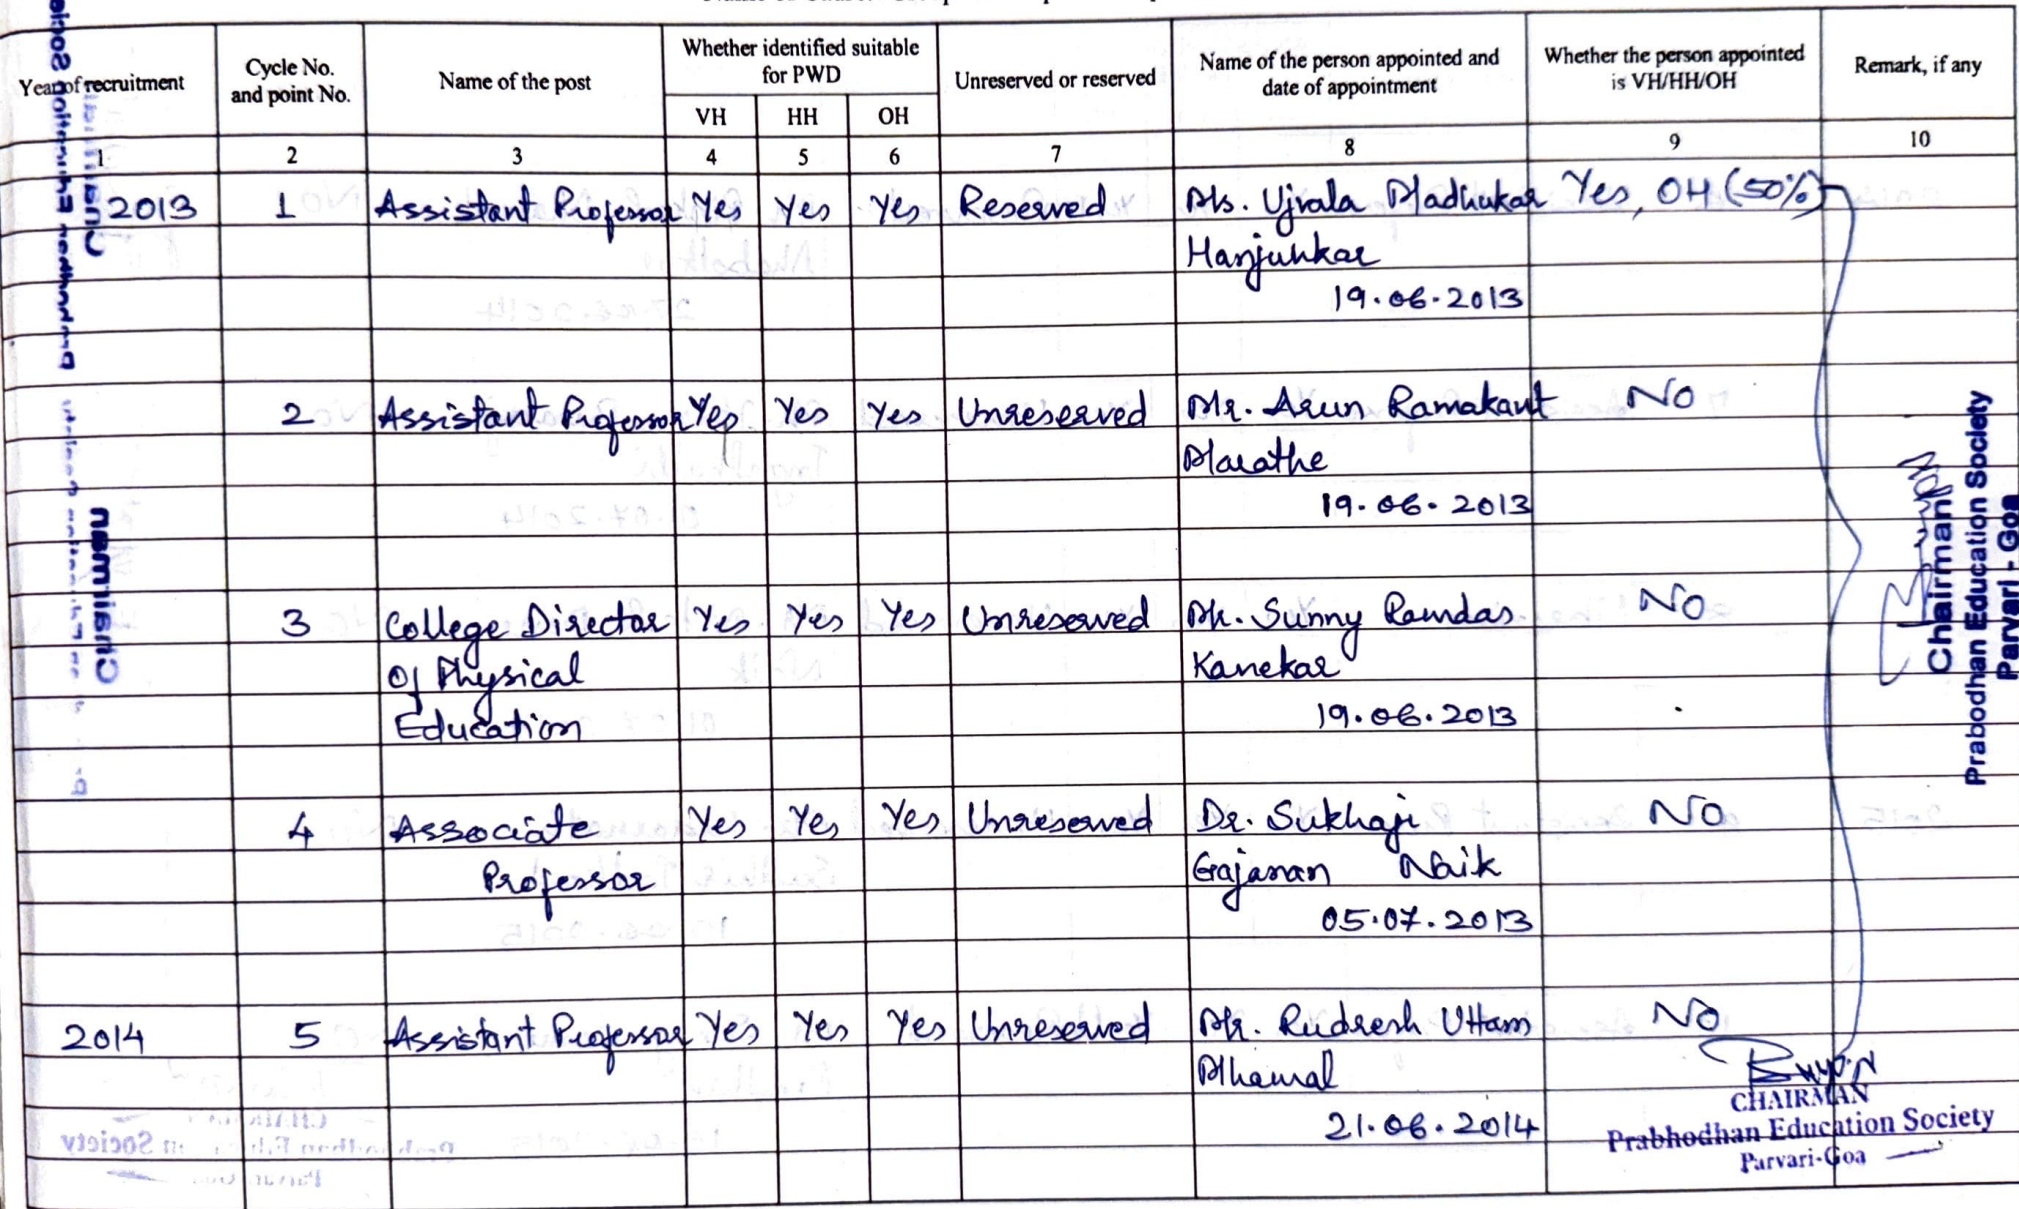 Year of recruitment | Cycle No. and point No. | Name of the post | Whether identified suitable for PWD | Unreserved or reserved | Name of the person appointed and date of appointment | Whether the person appointed is VH/HH/OH | Remark, if any
VH | HH | OH
1 | 2 | 3 | 4 | 5 | 6 | 7 | 8 | 9 | 10
2013 | 1 | Assistant Professor | Yes | Yes | Yes | Reserved | Ms. Ujvala Madhukar | Yes, OH (50%)
Hanjunkar
19.06.2013
2 | Assistant Professor | Yes | Yes | Yes | Unreserved | Mr. Arun Ramakant | No
Marathe
19.06.2013
3 | College Director | Yes | Yes | Yes | Unreserved | Mr. Sunny Ramdas | No
Of Physical | Kanekar
Education | 19.06.2013
4 | Associate | Yes | Yes | Yes | Unreserved | Dr. Sukhaji | No
Professor | Gajanan Naik
05.07.2013
2014 | 5 | Assistant Professor | Yes | Yes | Yes | Unreserved | Mr. Rudresh Uttam | No
Mhamal
21.06.2014
CHAIRMAN
Prabhodhan Education Society
Parvari-Goa
Chairman
Prabodhan Education Society
Parvari - Goa